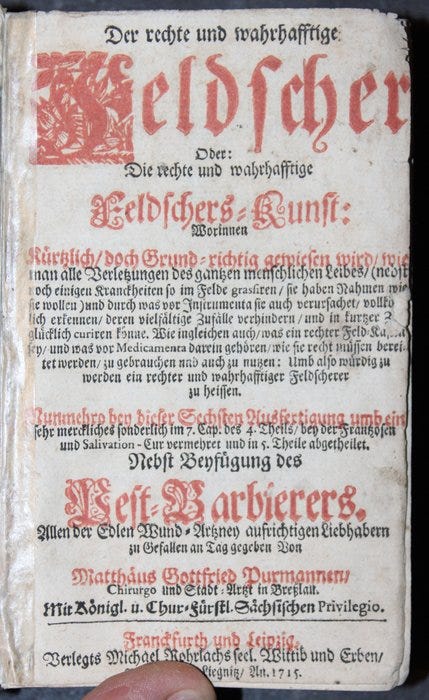 Der rechte und wahrhafftige
Feldscher
Oder:
Die rechte und wahrhafftige
Feldschers-Kunst:
Worinnen
Kürtzlich/ doch Grund-richtig gewiesen wird/ wie
man alle Verletzungen des gantzen menschlichen Leibes/ (nebst
noch einigen Kranckheiten so im Felde grasiren/ sie haben Nahmen wie
sie wollen) und durch was vor Instrumenta sie auch verursachet/
lich erkennen/ deren vielfältige Zufälle verhindern/ und in kurtzer
glücklich curiren könne. Wie ingleichen auch/ was ein rechter Feld-
und was vor Medicamenta darein gehören/ wie sie recht müssen berei-
tet werden/ zu gebrauchen und auch zu nutzen: Umb also würdig zu
werden ein rechter und wahrhafftiger Feldscherer
zu heissen.
Nunmehro bey dieser Sechsten Ausfertigung umb ein
sehr merckliches sonderlich im 7. Cap. des 4. Theils/ bey der Frantzosen
und Salivation-Cur vermehret und in 5. Theile abgetheilet.
Nebst Beyfügung des
Pest-Barbierers.
Allen der Edlen Wund-Artzney aufrichtigen Liebhabern
zu Gefallen an Tag gegeben Von
Matthäus Gottfried Purmannen/
Chirurgo und Stadt-Artzt in Breßlau.
Mit Königl. u. Chur-Fürstl. Sächsischen Privilegio.
Franckfurth und Leipzig,
Verlegts Michael Rohrlachs seel. Wittib und Erben/
Liegnitz/ An. 1715.